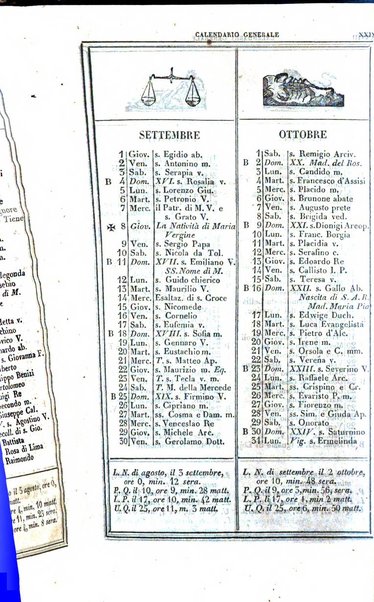 CALENDARIO GENERALE
SETTEMBRE
1 Giov. s. Egidio ab.
2 Ven. s. Antonino m.
3 Sab. s. Serapia v.
B 4 Dom. XVI. s. Rosalia v.
5 Lun. s. Lorenzo Giu.
6 Mart. s. Petronio V.
7 Mer. il Patr. di M. V. e
s. Grato V.
✠ 8 Giov. La Natività di Maria
Vergine
9 Ven. s. Sergio Papa
10 Sab. s. Nicola da Tol.
B 11 Dom. XVII. s. Emiliano V.
SS. Nome di M.
12 Lun. s. Guido chierico
13 Mar. s. Maurilio V.
14 Mer. Esaltaz. di s. Croce
15 Giov. s. Nicomede
16 Ven. s. Cornelio
17 Sab. s. Eufemia v.
B 18 Dom. XVIII. s. Sofia m.
19 Lun. s. Gennaro V.
20 Mart. s. Eustachio m.
21 Merc. T. s. Matteo Ap.
22 Giov. s. Maurizio m. Eq.
23 Ven. T. s. Tecla v. m.
24 Sab. T. M. della Mercede
B 25 Dom. XIX. s. Firmino V.
26 Lun. s. Cipriano m.
27 Mart. ss. Cosma e Dam. m.
28 Mer. s. Venceslao Re
29 Giov. s. Michele Arc.
30 Ven. s. Gerolamo Dott.
L. N. di agosto, il 3 settembre,
ore 0, min. 12 sera.
P. Q. il 10, ore 9, min. 28 matt.
L. P. il 17, ore 10, min. 42 matt.
U. Q. il 25, ore 11, m. 3 matt.
OTTOBRE
1 Sab. s. Remigio Arciv.
B 2 Dom. XX. Mad. del Ros.
3 Lun. s. Candido m.
4 Mart. s. Francesco d'Assisi
5 Merc. s. Placido m.
6 Giov. s. Brunone abate
7 Ven. s. Augusto prete
8 Sab. s. Brigida ved.
B 9 Dom. XXI. s. Dionigi Areop.
10 Lun. s. Franc. Borgia
11 Mart. s. Placidia v.
12 Merc. s. Serafino c.
13 Giov. s. Edoardo Re
14 Ven. s. Callisto I. P.
15 Sab. s. Teresa v.
B 16 Dom. XXII. s. Gallo Ab.
Nascita di S. A. R.
Mad. Maria Pia
17 Lun. s. Edwige Duch.
18 Mart. s. Luca Evangelista
19 Merc. s. Pietro d'Alc.
20 Giov. s. Irene m.
21 Ven. s. Orsola e C. mm.
22 Sab. s. Verena v.
B 23 Dom. XXIII. s. Severino V.
24 Lun. s. Raffaele Arc.
25 Mart. ss. Crispino e Cr.
26 Merc. s. Evaristo P. m.
27 Giov. s. Fiorenzo m.
28 Ven. ss. Sim. e Giuda Ap.
29 Sab. s. Onorato
B 30 Dom. XXIV. s. Saturnino
31 Lun. Vig. s. Ermelinda
L. N. di settembre il 2 ottobre,
ore 10, min. 48 sera.
P. Q. il 9, ore 3, min. 56, sera.
L. P. il 17, ore 4, min 2 matt.
U. Q. il 25, ore 6, min. 50 matt.